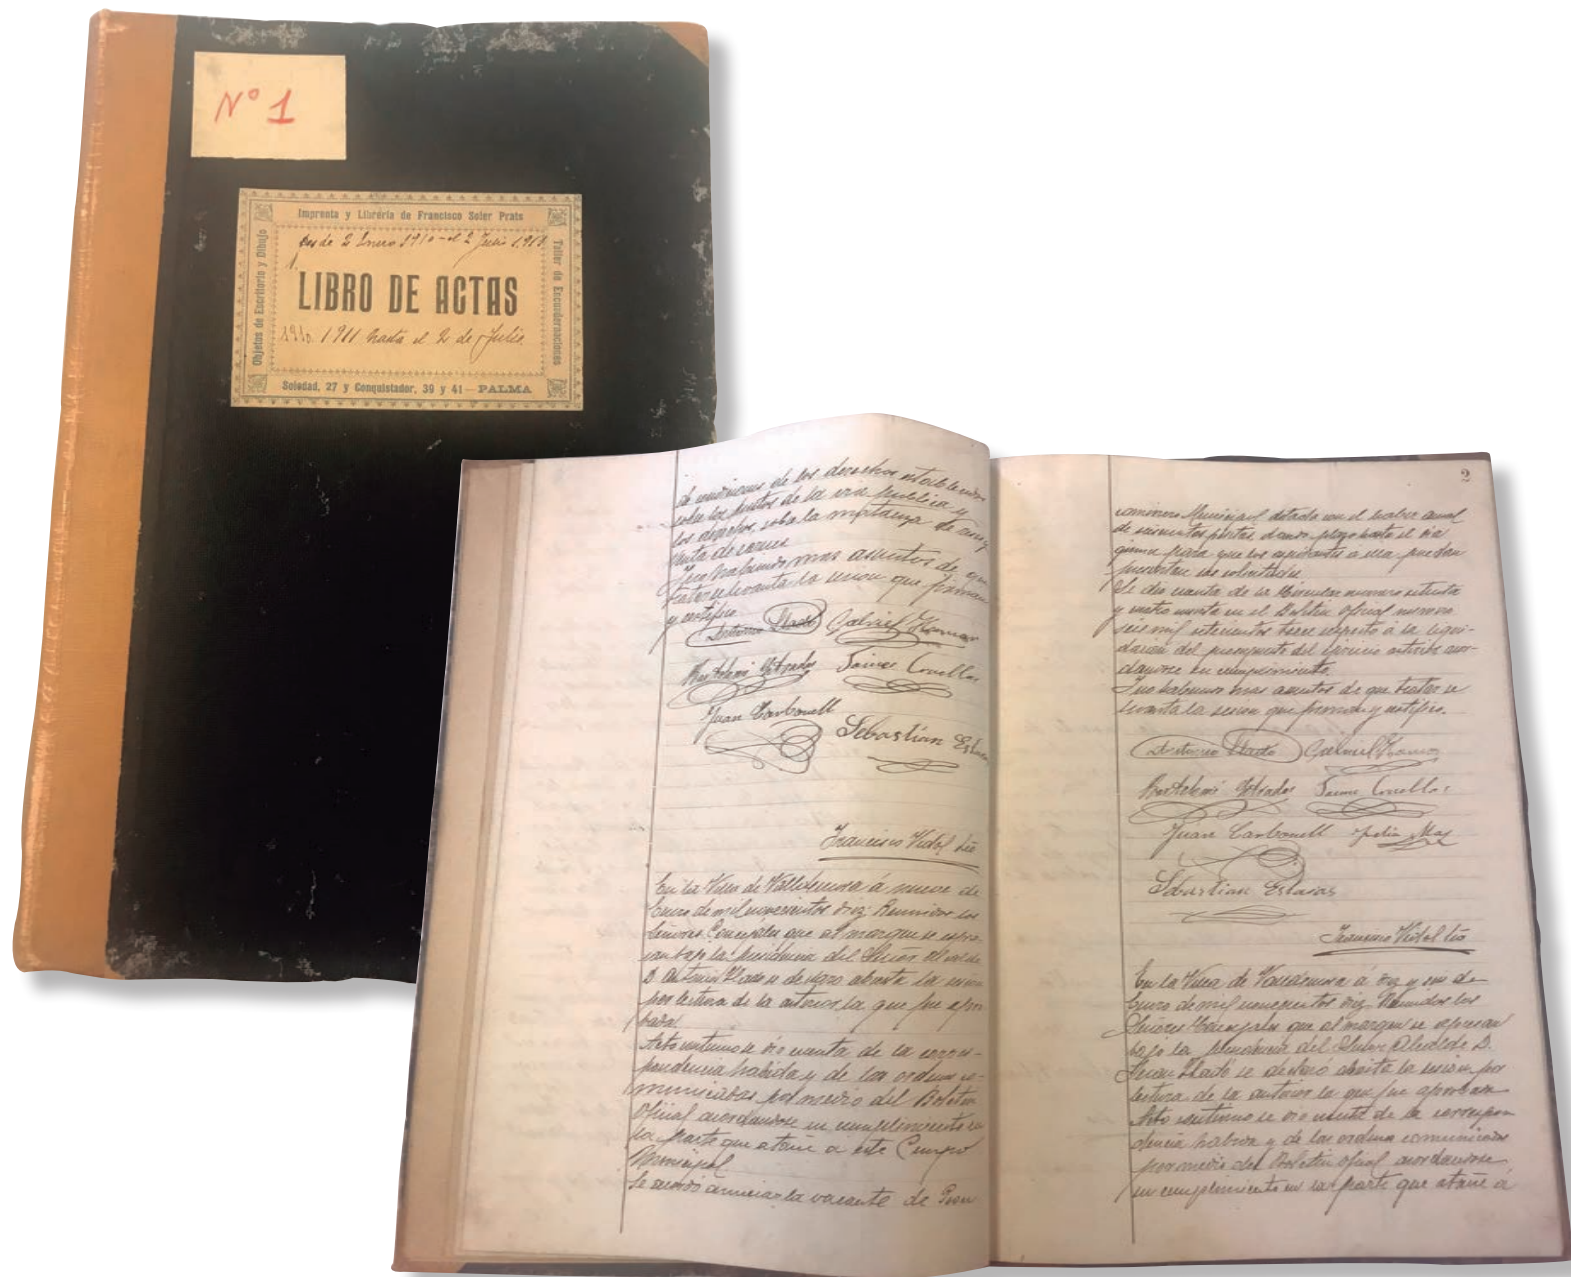 Nº 1
Imprenta y Librería de Francisco Soler Prats
Objetos de Escritorio y Dibujo
Taller de Encuadernaciones
Desde 2 Enero 1910 - el 2 Julio 1911
1.
LIBRO DE ACTAS
1910. 1911 hasta el 2 de Julio.
Soledad, 27 y Conquistador, 39 y 41 — PALMA
de los derechos establecidos
sobre los puestos de la via publica y
los derechos sobre la matanza de
venta de carnes
Y no habiendo mas asuntos de que
tratar se levanta la sesion que firman
y certifico
Antonio Lladó Gabriel Homar
Bartolomé Estrades Jaime Cruellas
Juan Carbonell
Sebastian Estaras
Francisco Vidal Srio
En la Villa de Valldemosa á nueve de
Enero de mil novecientos diez: Reunidos los
Señores Concejales que al margen se espre-
san bajo la presidencia del Señor Alcalde
D. Antonio Lladó se declaro abierta la sesion
por lectura de la anterior la que fue apro-
bada.
Acto continuo se dio cuenta de la corres-
pondencia habida y de las ordenes co-
municadas por medio del Boletin
Oficial acordandose su cumplimiento en
la parte que atañe á este Cuerpo
Municipal
Se acordó anunciar la vacante de Peon
2
caminero Municipal dotada con el haber anual
de seiscientas pesetas, dando plazo hasta el dia
quince para que los aspirantes a ella puedan
presentar sus solicitudes
Se dio cuenta de la Circular numero setenta
y cuatro inserta en el Boletin Oficial numero
seis mil setecientos trece respecto á la liqui-
dacion del presupuesto del ejercicio anterior acor-
dandose su cumplimiento.
Y no habiendo mas asuntos de que tratar se
levanta la sesion que firman y certifico.
Antonio Lladó Gabriel Homar
Bartolomé Estrades Jaime Cruellas
Juan Carbonell Mas
Sebastian Estaras
Francisco Vidal Srio
En la Villa de Valldemosa á diez y seis de
Enero de mil novecientos diez. Reunidos los
Señores Concejales que al margen se espresan
bajo la presidencia del Señor Alcalde D.
Lladó se declaro abierta la sesion por
lectura de la anterior la que fue aprobada
Acto continuo se dio cuenta de la correspon
dencia habida y de las ordenes comunicadas
por medio del Boletin Oficial acordandose
su cumplimiento en la parte que atañe á